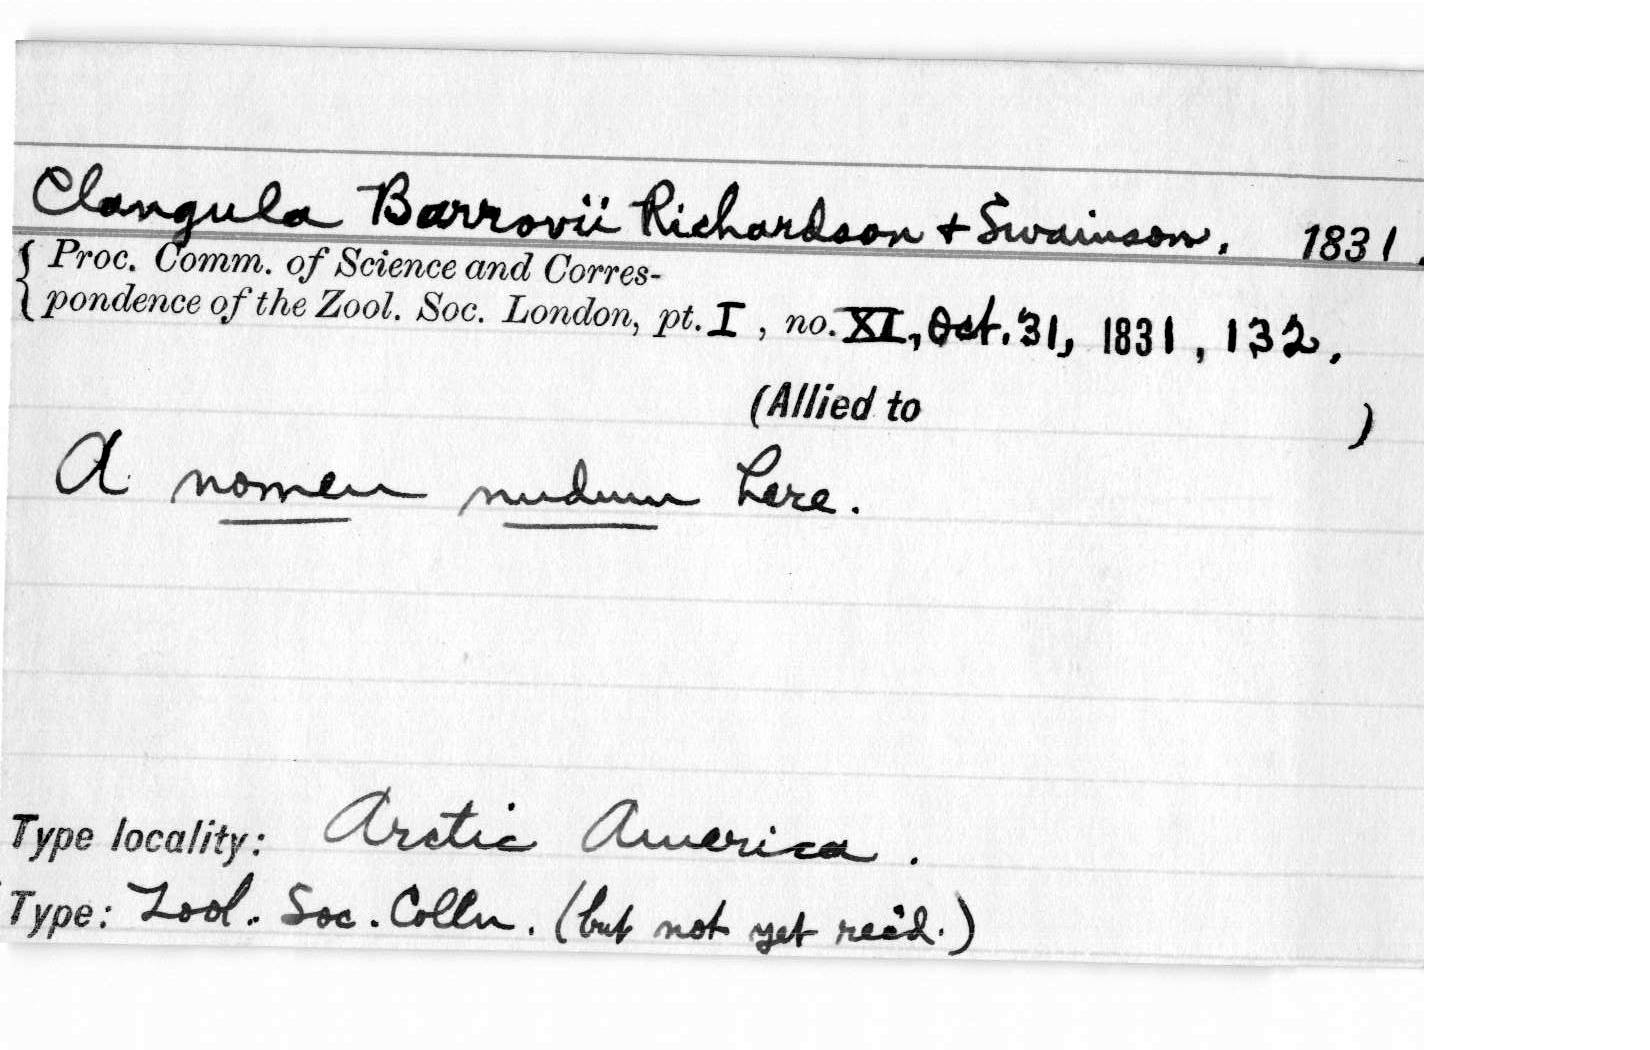 Clangula Barrovii Richardson + Swainson. 1831.
{ Proc. Comm. of Science and Corres-
pondence of the Zool. Soc. London, pt. I, no. XI, Oct. 31, 1831, 132.
(Allied to )
A nomen nudum here.
Type locality: Arctic America.
Type: Zool. Soc. Colln. (but not yet rec'd.)